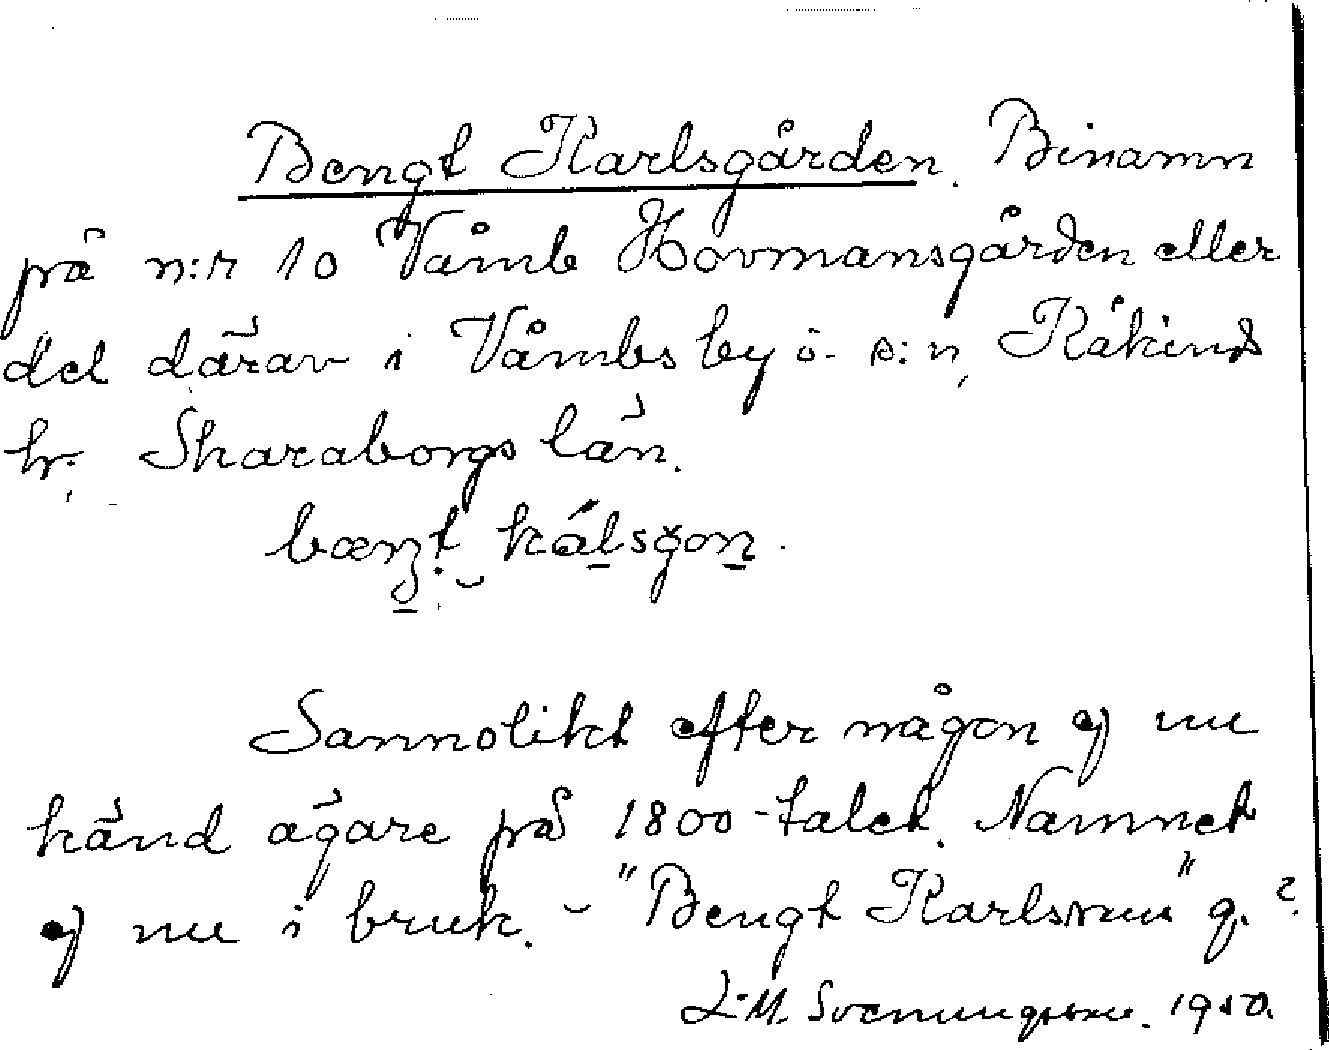 Bengt Karlsgården. Binamn
på n:r 10 Våmb Hovmansgården eller
del därav i Våmbs by o. s:n, Kåkinds
hr. Skaraborgs län.
Sannolikt efter någon ej nu
känd ägare på 1800-talet. Namnet
ej nu i bruk. - "Bengt Karlsson" g.?
L.M. Svenungsson. 1950.